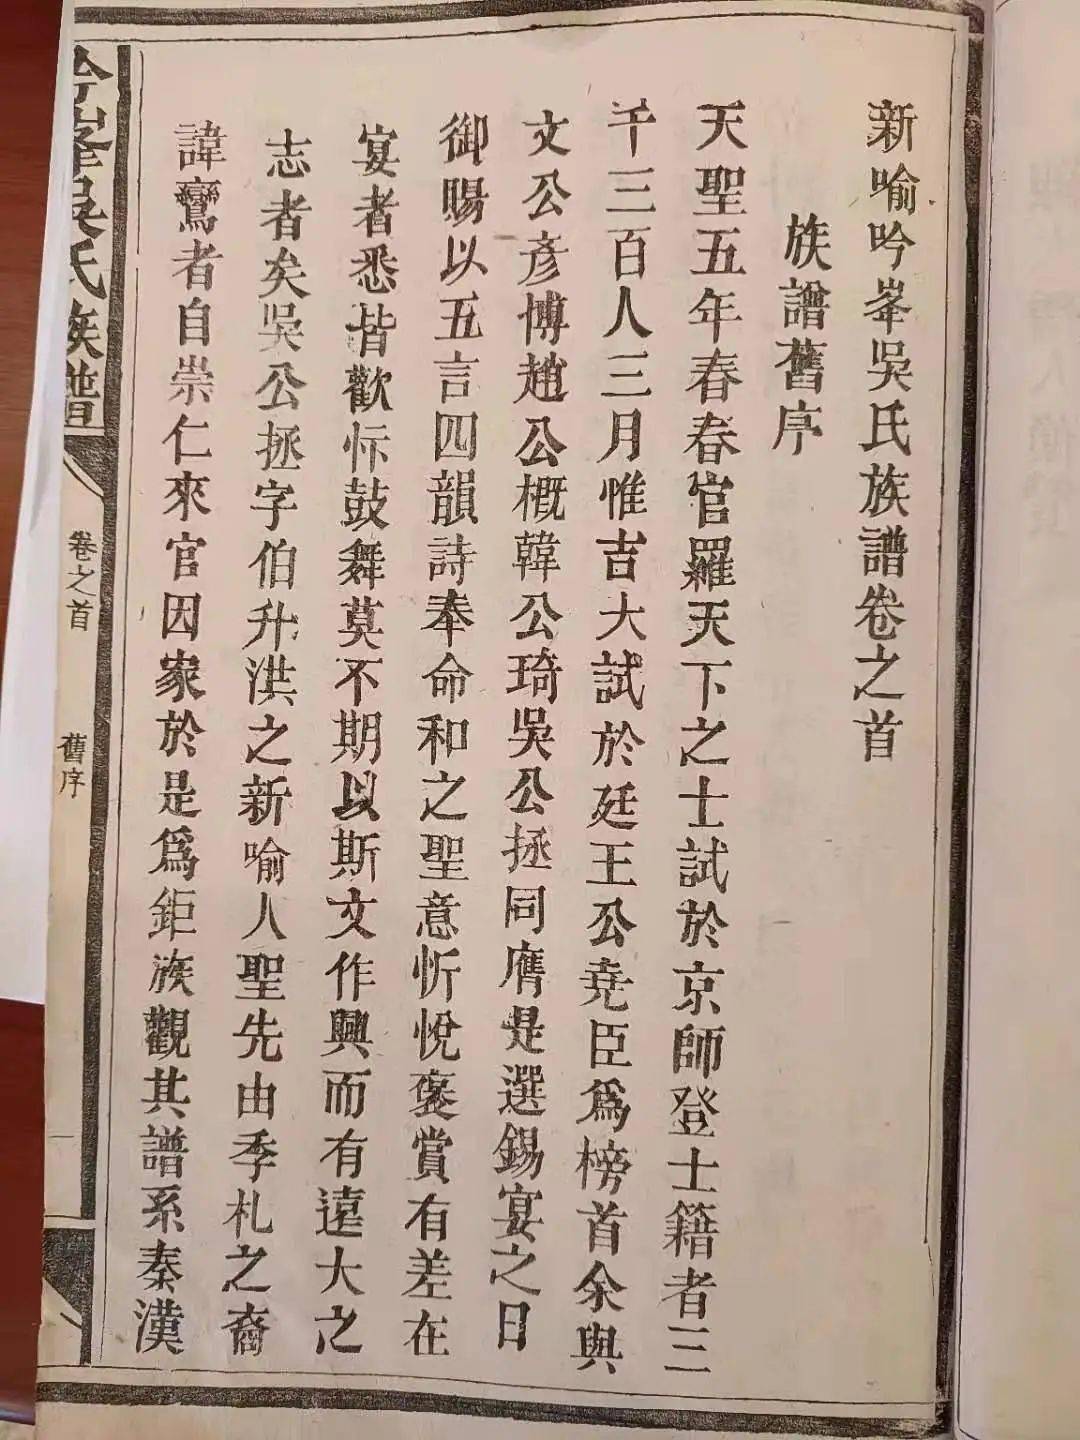 新喻吟峯吳氏族譜卷之首
族譜舊序
天聖五年春春官羅天下之士試於京師登士籍者三
千三百人三月惟吉大試於廷王公堯臣爲榜首余與
文公彦博趙公概韓公琦吳公拯同膺是選錫宴之日
御賜以五言四韻詩奉命和之聖意忻悅褒賞有差在
宴者悉皆歡忭鼓舞莫不期以斯文作興而有遠大之
志者矣吳公拯字伯升洪之新喻人聖先由季札之裔
諱鸞者自崇仁來官因家於是爲鉅族觀其譜系秦漢
吟峯吳氏族譜
卷之首
舊序